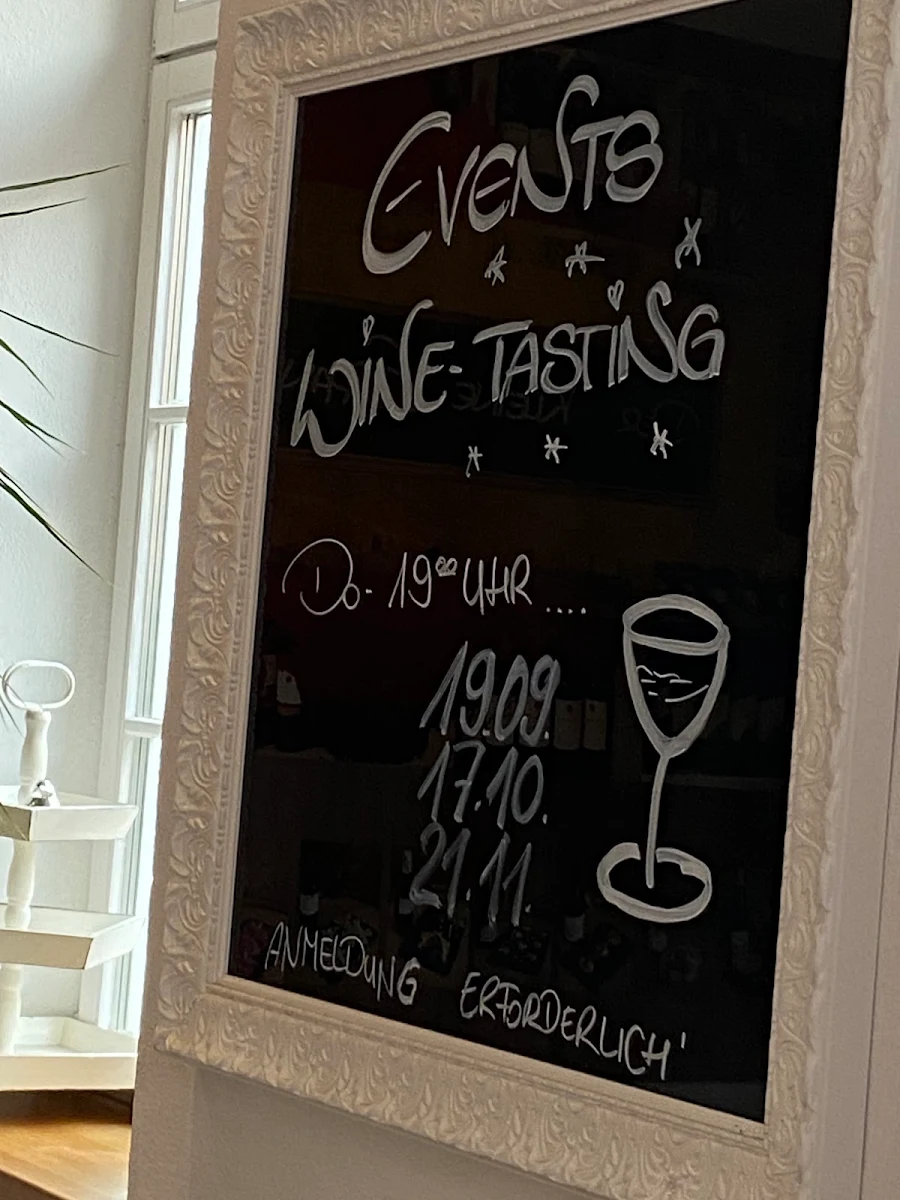 EVENTS
WINE-TASTING
Do. 19⁰⁰ UHR ....
19.09.
17.10.
21.11.
ANMELDUNG ERFORDERLICH!